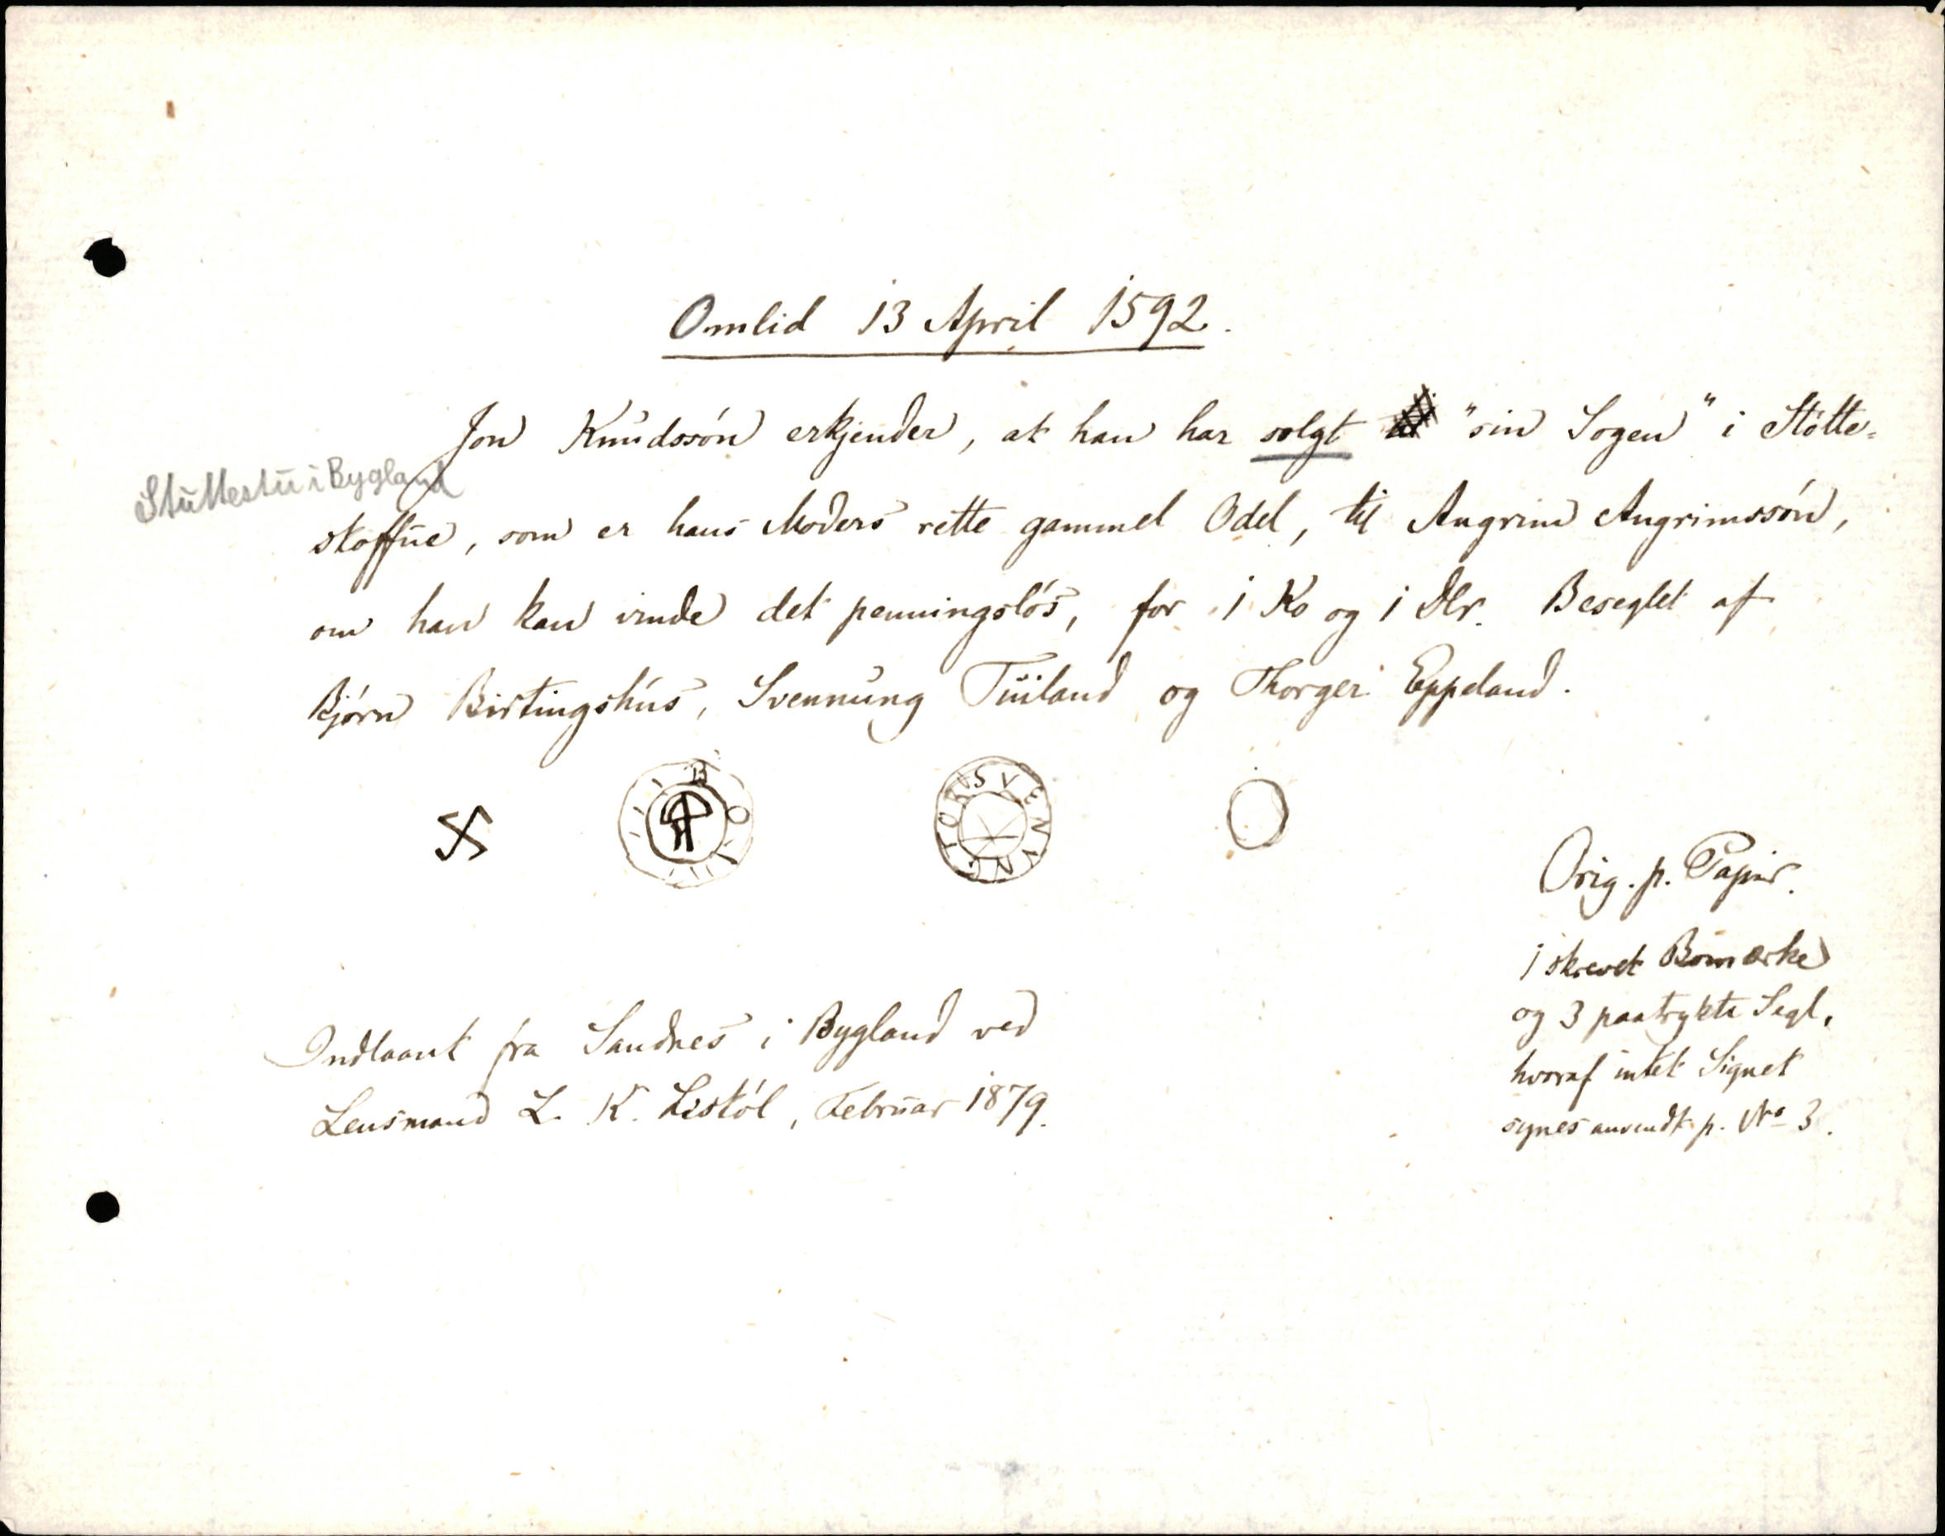 Omlid 13 April 1592.
Jon Knudssön erkjender, at han har solgt "sin Sogen" i Stötte-
Stuttestu i Bygland
stoffue, som er hans Moders rette gammel Odel, til Angrim Angrimssön,
om han kan vinde det penningslös, for 1 Ko og 1 Dlr. Beseglet af
Björn Birtingshus, Svennung Tuiland og Thorger Eppeland.
B O
SVENVNG TORUS
Orig. p. Papir.
1 skrevet Bomærke
og 3 paatrykte Segl,
hvoraf intet Signet
synes anvendt p. No 3.
Indlaant fra Sandnes i Bygland ved
Lensmand L. K. Liestöl, Februar 1879.